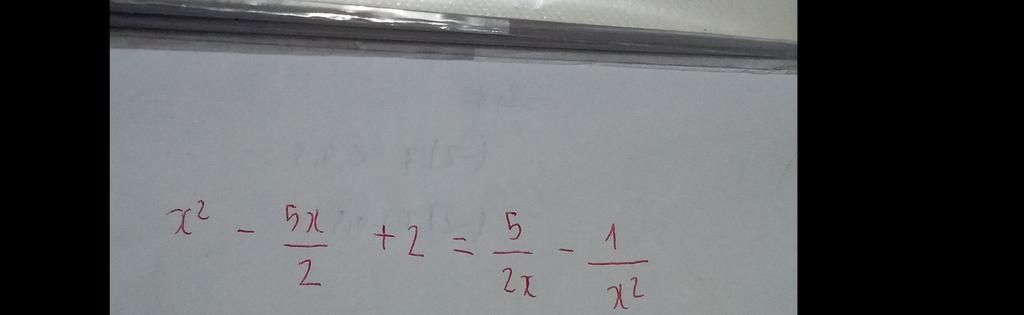 x² - 5x/2 + 2 = 5/2x - 1/x²